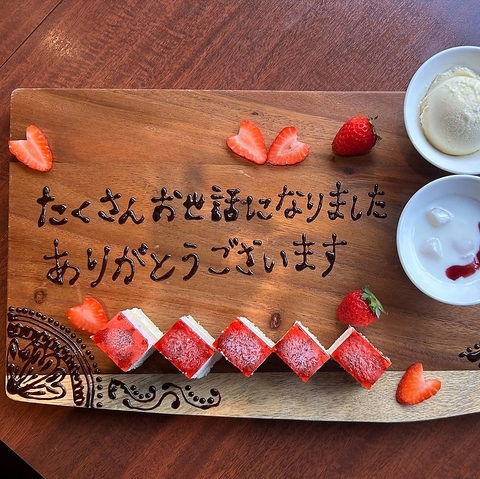 たくさんお世話になりました
ありがとうございます